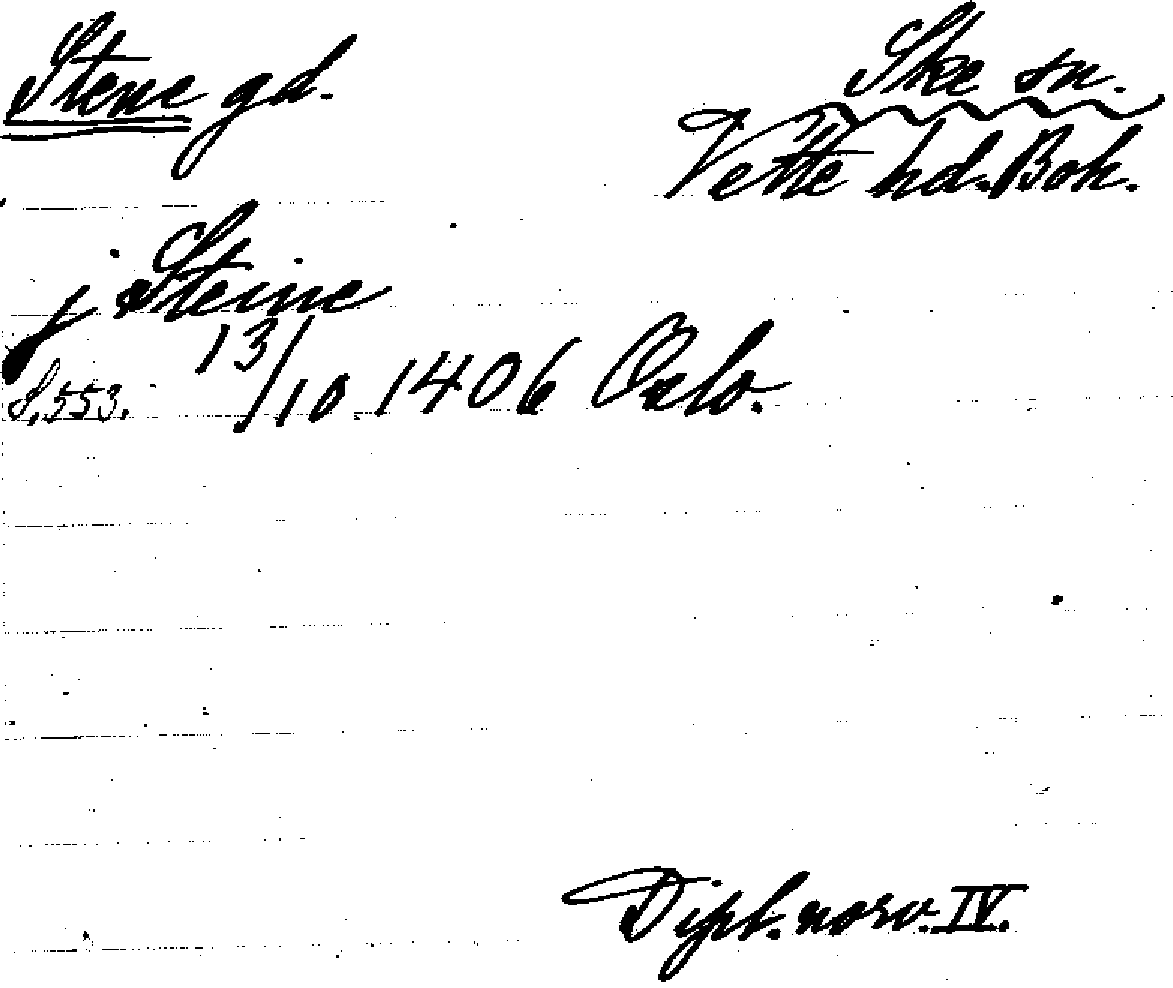 Stene gd.
Skee sn.
Vette hd. Boh.
j Steine
13/10 1406 Oslo.
S. 553.
Dipl. norv. IV.